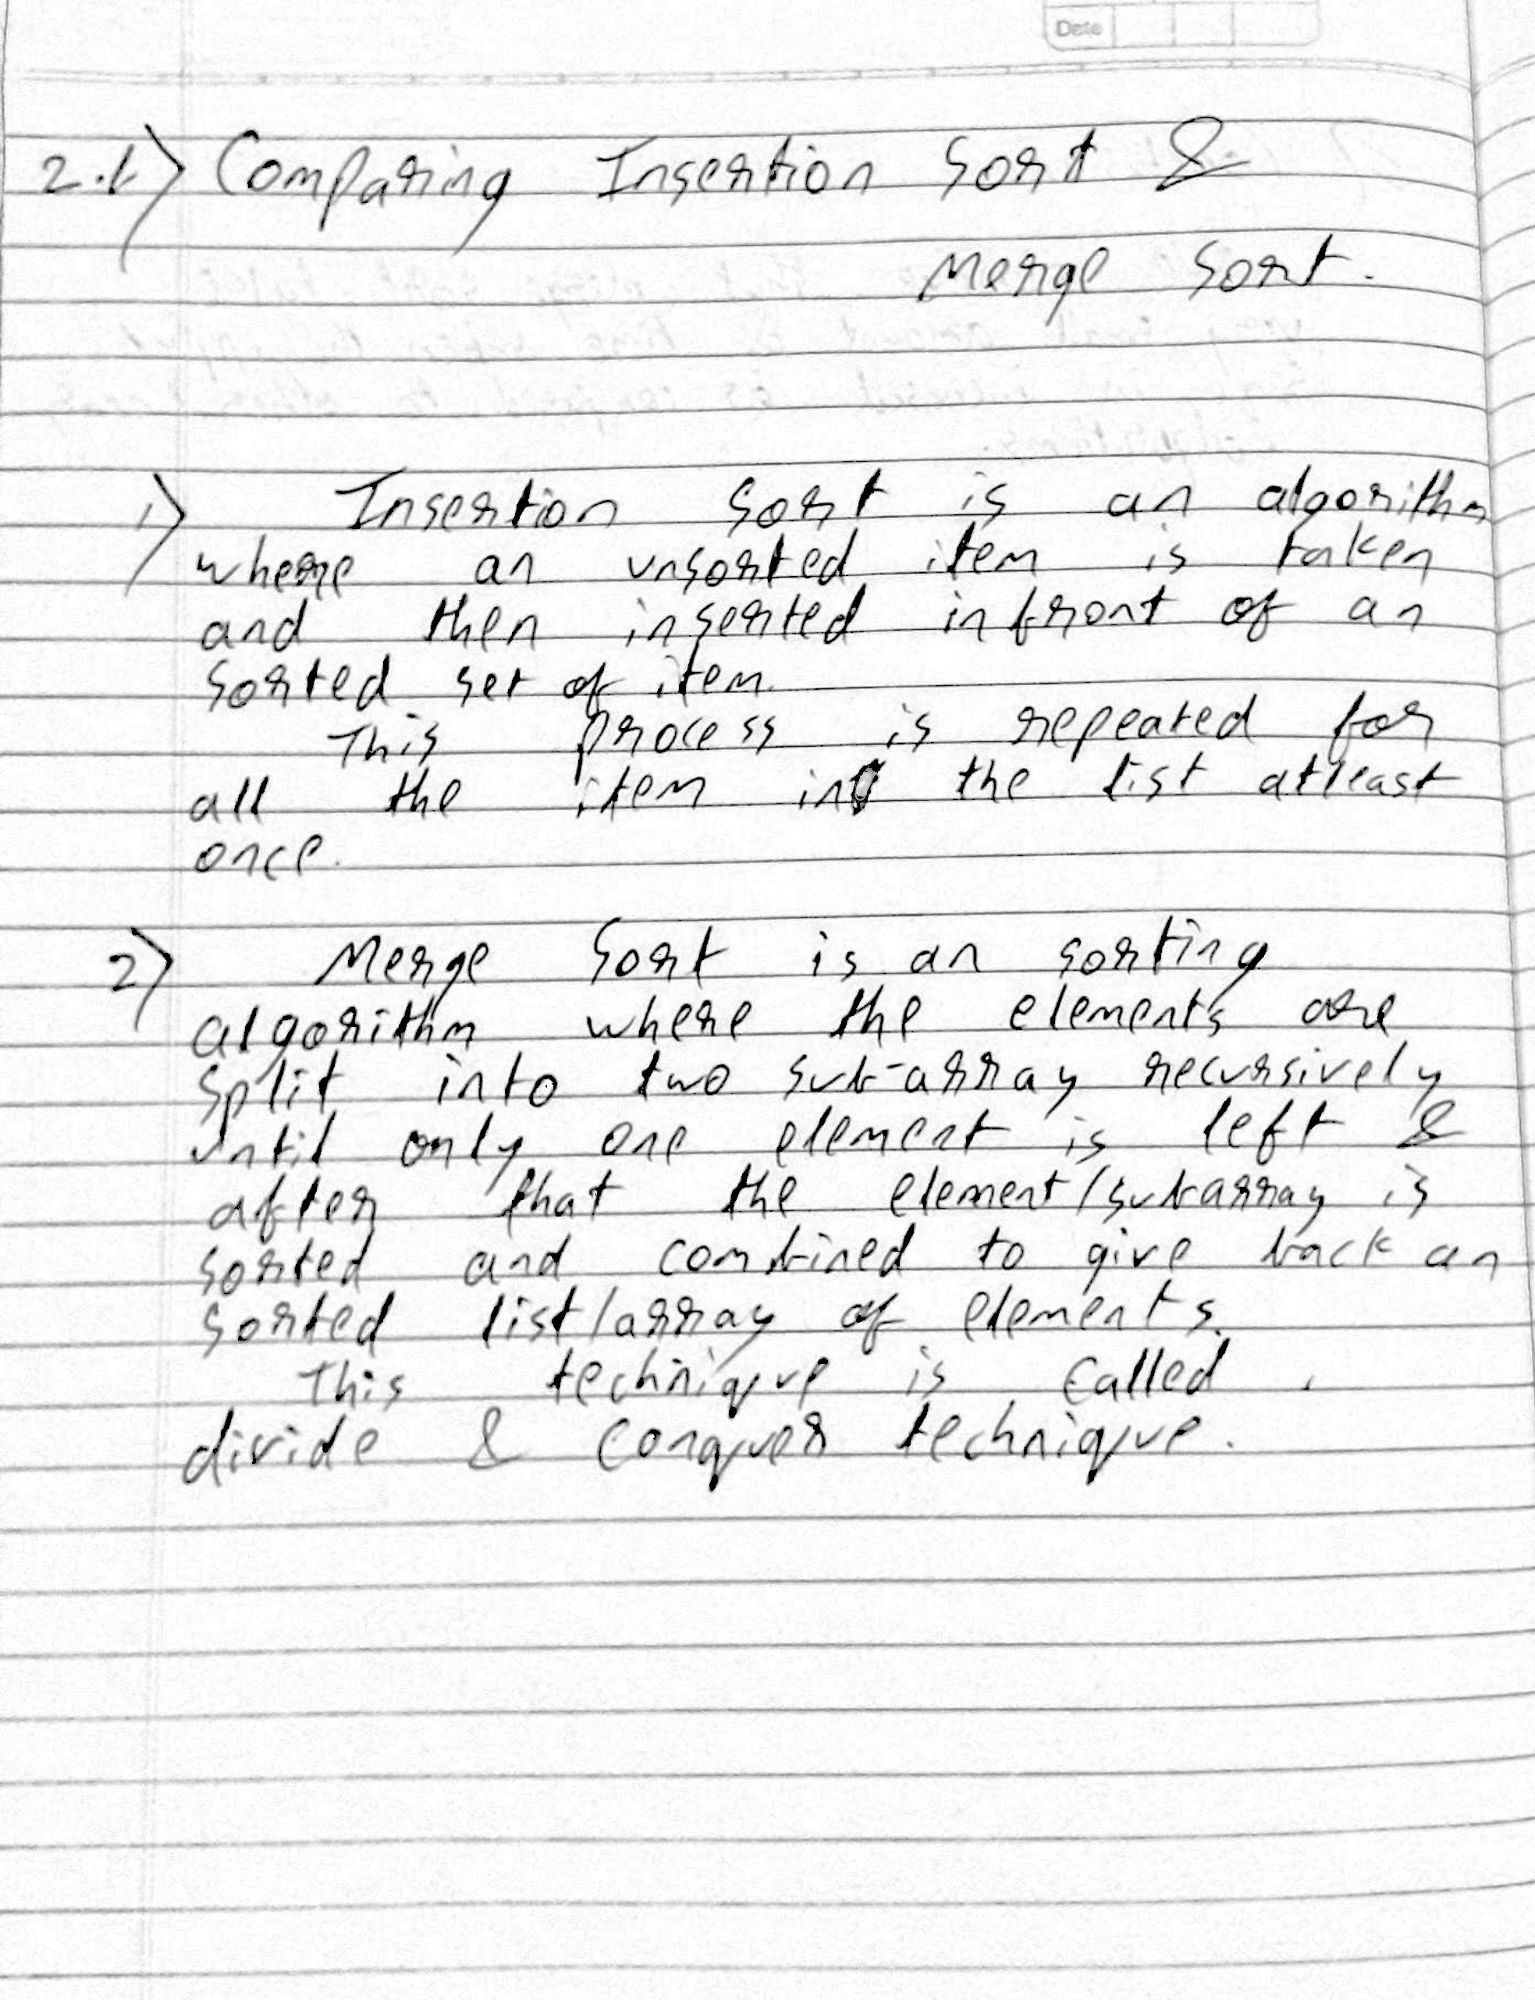 Date
2.1) Comparing Insertion Sort &
Merge Sort.
1) Insertion Sort is an algorithm
where an unsorted item is taken
and then inserted infront of an
sorted set of item.
This process is repeated for
all the item in the list atleast
once.
2) Merge Sort is an sorting
algorithm where the elements are
split into two sub-array recursively
until only one element is left &
after that the element/subarray is
sorted and combined to give back an
sorted list/array of elements.
This technique is called
divide & conquer technique.